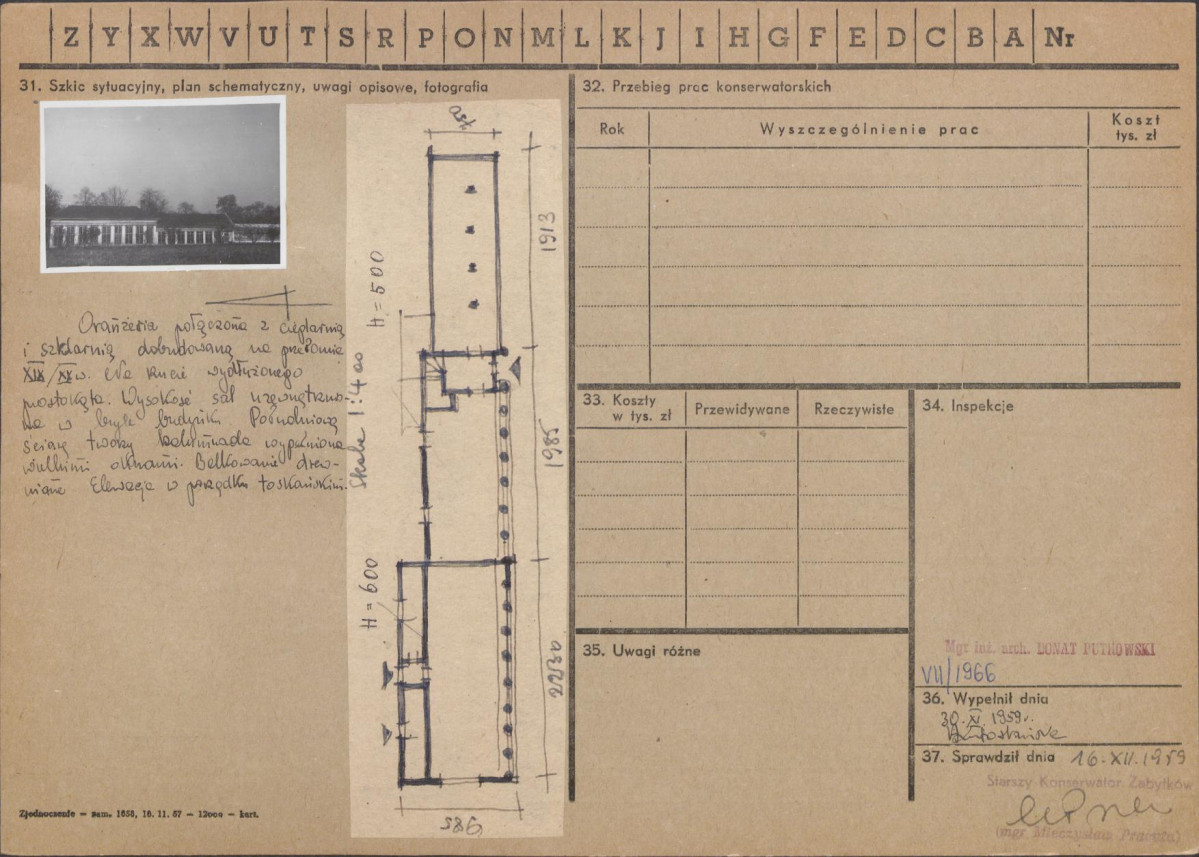 Z Y X W V U T S R P O N M L K J I H G F E D C B A Nr
31. Szkic sytuacyjny, plan schematyczny, uwagi opisowe, fotografia
Oranżeria połączona z cieplarnią
i szklarnią dobudowaną na przełomie
XIX/XX w. Na rzucie wydłużonego
prostokąta. Wysokość sal uzewnętrznio-
na w bryle budynku Południową
ścianę tworzy kolumnada wypełniona
wielkimi oknami. Belkowanie drew-
niane Elewacja w porządku toskańskim.
H = 500
Skala 1:400
H = 600
750
1913
1985
2230
985
Zjednoczenie – zam. 1658, 16. 11. 57 – 12000 – kart.
32. Przebieg prac konserwatorskich
Rok
Wyszczególnienie prac
Koszt
tys. zł
33. Koszty
w tys. zł
Przewidywane
Rzeczywiste
34. Inspekcje
Mgr inż. arch. DONAT PUTKOWSKI
VII/1966
35. Uwagi różne
36. Wypełnił dnia
30. XI. 1959 r.
37. Sprawdził dnia 16.XII.1959
Starszy Konserwator Zabytków
(mgr Mieczysław